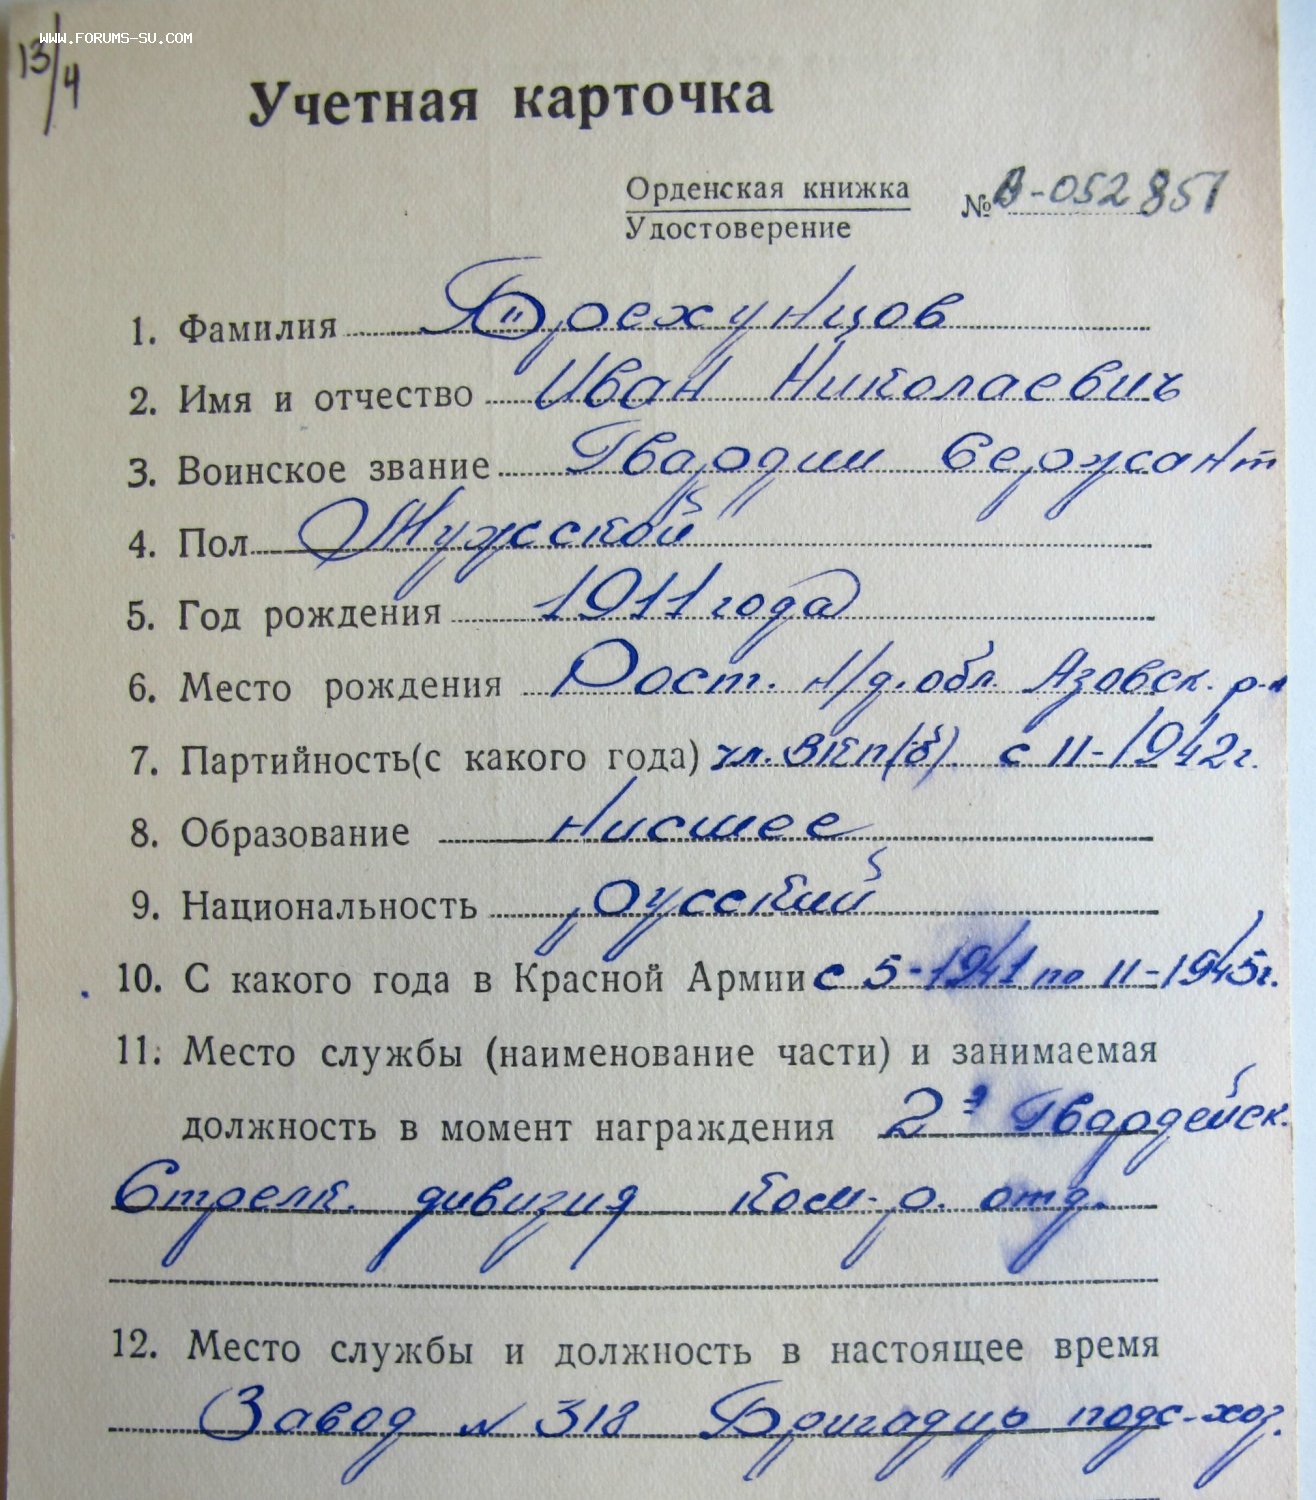 www.forums-su.com
13/4
Учетная карточка
Орденская книжка
Удостоверение
№ В-052851
1. Фамилия Брехунцов
2. Имя и отчество Иван Николаевич
3. Воинское звание Гвардии Сержант
4. Пол Мужской
5. Год рождения 1911 года
6. Место рождения Рост. н/д. обл. Азовск. р-н
7. Партийность(с какого года) чл. ВКП(б) с II-1942г.
8. Образование Нисшее
9. Национальность русский
10. С какого года в Красной Армии с 5-1941 по II-1945г.
11. Место службы (наименование части) и занимаемая
должность в момент награждения 2я Гвардейск.
Стрелк. дивизия Ком-р. отд.
12. Место службы и должность в настоящее время
Завод N 318 Бригадир подс-хоз.